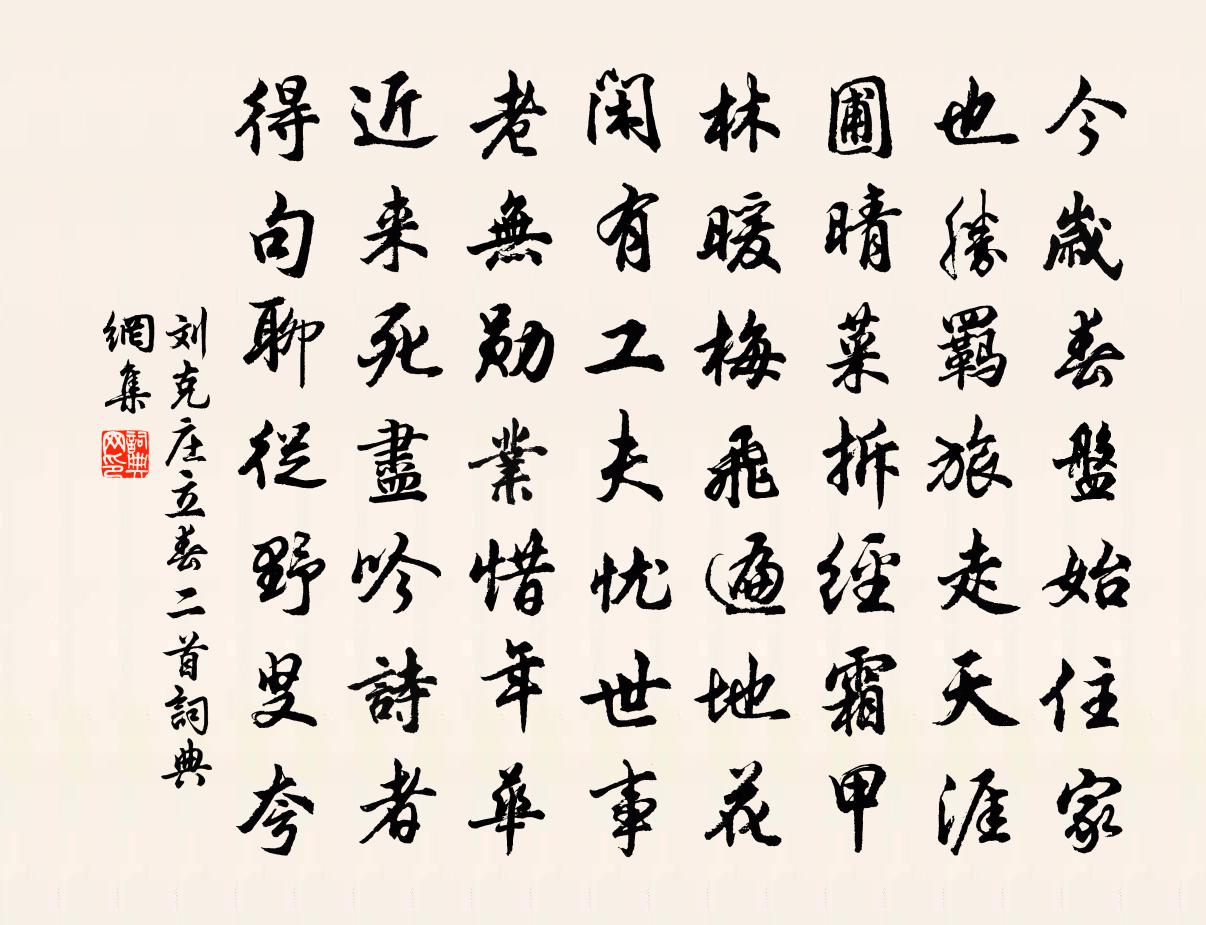 今歲春盤始住家
也勝羈旅走天涯
圃晴菜拆經霜甲
林暖梅飛遍地花
閑有工夫忧世事
老無勛業惜年華
近来死盡吟詩者
得句聊從野叟夸
刘克庄立春二首詞典
網集
詞典
网